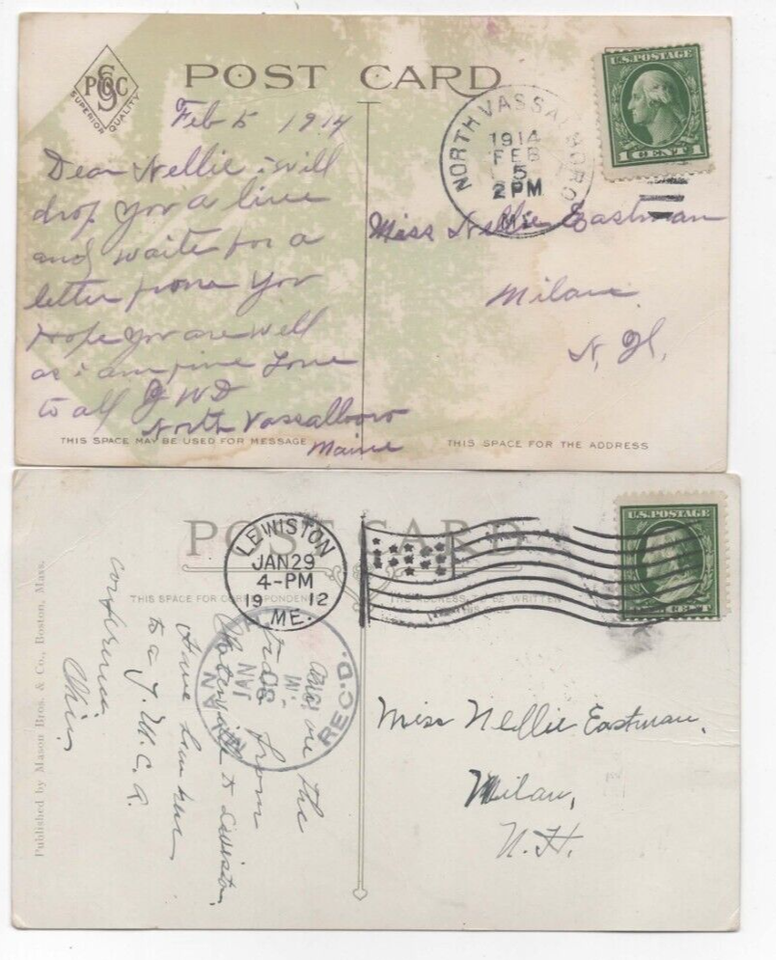 POST CARD
S
POC
SUPERIOR QUALITY
Feb 5 1914
Dear Nellie i will
drop you a line
and waite for a
letter frome you
hope you are well
as i am fine Love
to all J W D
North Vassalboro
Maine
NORTH VASSALBORO
1914
FEB
5
2 PM
ME.
U.S. POSTAGE
1 CENT 1
Miss Nellie Eastman
Milan
N. H.
THIS SPACE MAY BE USED FOR MESSAGE
THIS SPACE FOR THE ADDRESS
POST CARD
THIS SPACE FOR CORRESPONDENCE
THE ADDRESS TO BE WRITTEN
Published by Mason Bros. & Co., Boston, Mass.
LEWISTON
JAN 29
4-PM
19 12
ME.
U.S. POSTAGE
CENT
REC'D.
JAN
30
on the
from
to Lewiston.
Have been
to a Y.M.C.A.
conference
Miss Nellie Eastman,
Milan,
N.H.